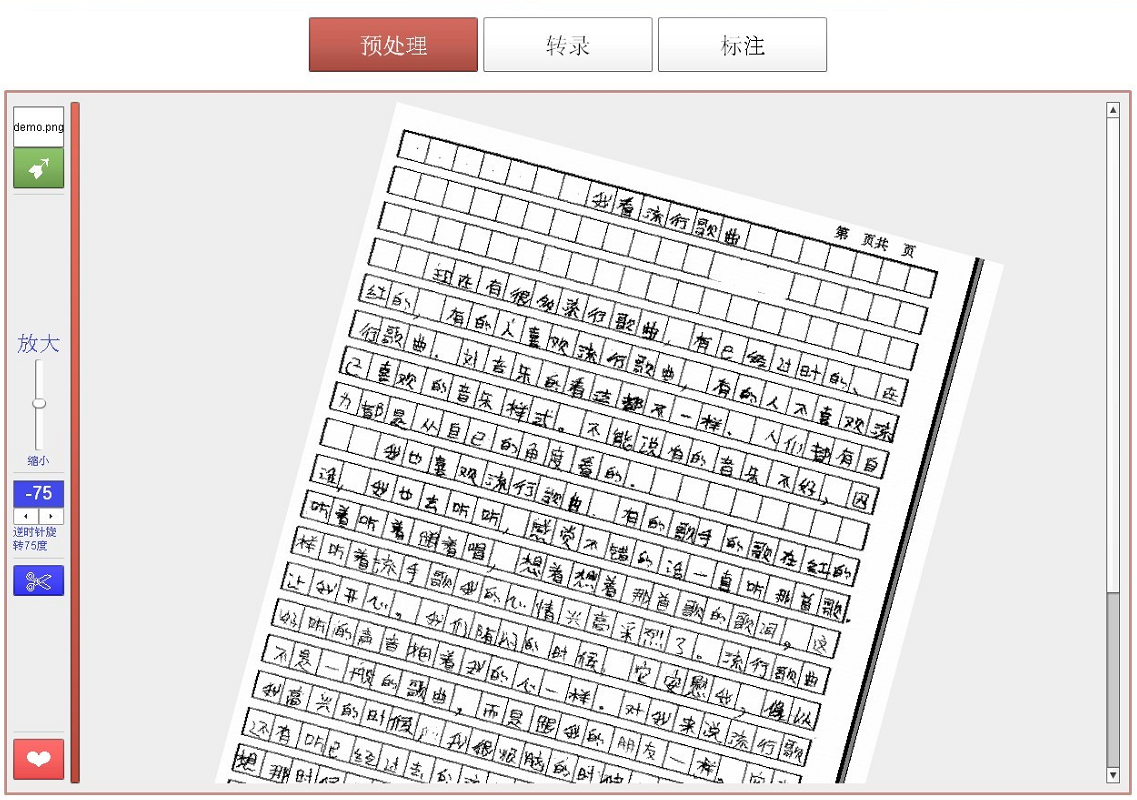 预处理
转录
标注
demo.png
放大
缩小
-75
逆时针旋
转75度
我看流行歌曲
第 页共 页
现在有很多流行歌曲，有已经过时的、在
红的，有的人喜欢流行歌曲，有的人不喜欢流
行歌曲。对音乐的看法都不一样。人们都有自
己喜欢的音乐样式。不能说有的音乐不好，因
为都是从自己的角度看的。
我也喜欢流行歌曲。有的歌手的歌在红的
谁，我也去听听，感觉不错的话一直听那首歌。
听着听着随着唱，想着想着那首歌的歌词，这
样听着 手歌我的心情兴高采烈了。流行歌曲
让我开心。我们随 的时候，它安慰我，像以
好听的声音抱着我的心一样。对我来说流行歌
不是一般的歌曲，而是跟我的朋友一样。
我高兴的时候，我很烦恼的时候
还有听已经过去的
想那时候